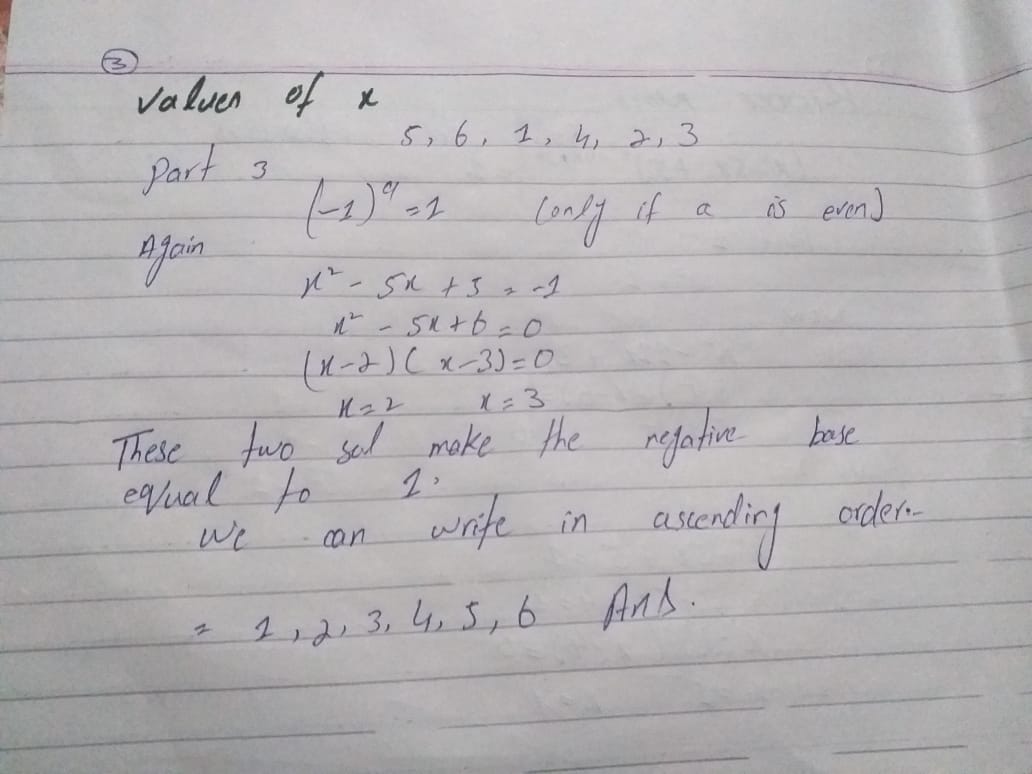 3
values of x
5, 6, 1, 4, 2, 3
Part 3
(-1)ᵃ = 1 (only if a is even)
Again
x² - 5x + 5 = -1
x² - 5x + 6 = 0
(x-2)(x-3) = 0
x = 2 x = 3
These two sol make the negative base
equal to 1.
We can write in ascending order.-
= 1, 2, 3, 4, 5, 6 Ans.